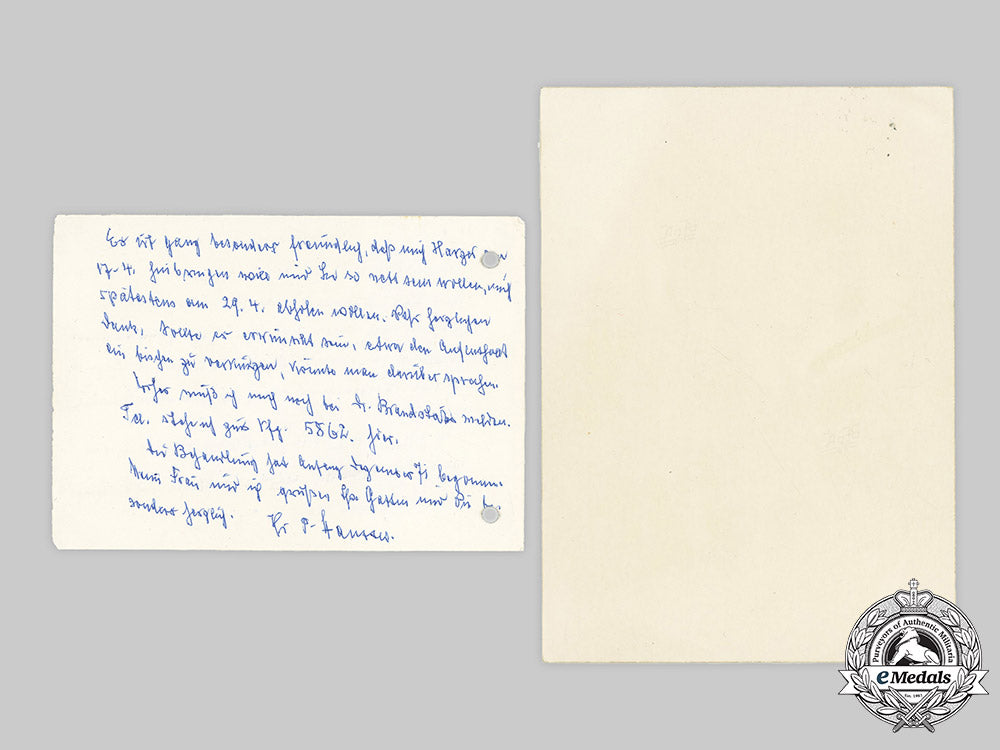 Es ist ganz besonders freundlich, daß mich Harzer
17-4. hinbringen will und Sie so nett sein wollen, mich
spätestens am 29.4. abholen wollen. Sehr herzlichen
Dank. Sollte es erwünscht sein, etwa den Aufenthalt
ein bischen zu verkürzen, könnte man darüber sprachen.
muß ich mich noch bei Dr. melden.
Tel. stehe ich zur Vfg. 5862. hier.
Die Behandlung hat Anfang Dezember 71 begonnen.
Meine Frau und ich grüßen Ihren Gatten und Sie be-
sonders herzlich. Ihr P. Hausser.
Purveyors of Authentic Militaria
eMedals